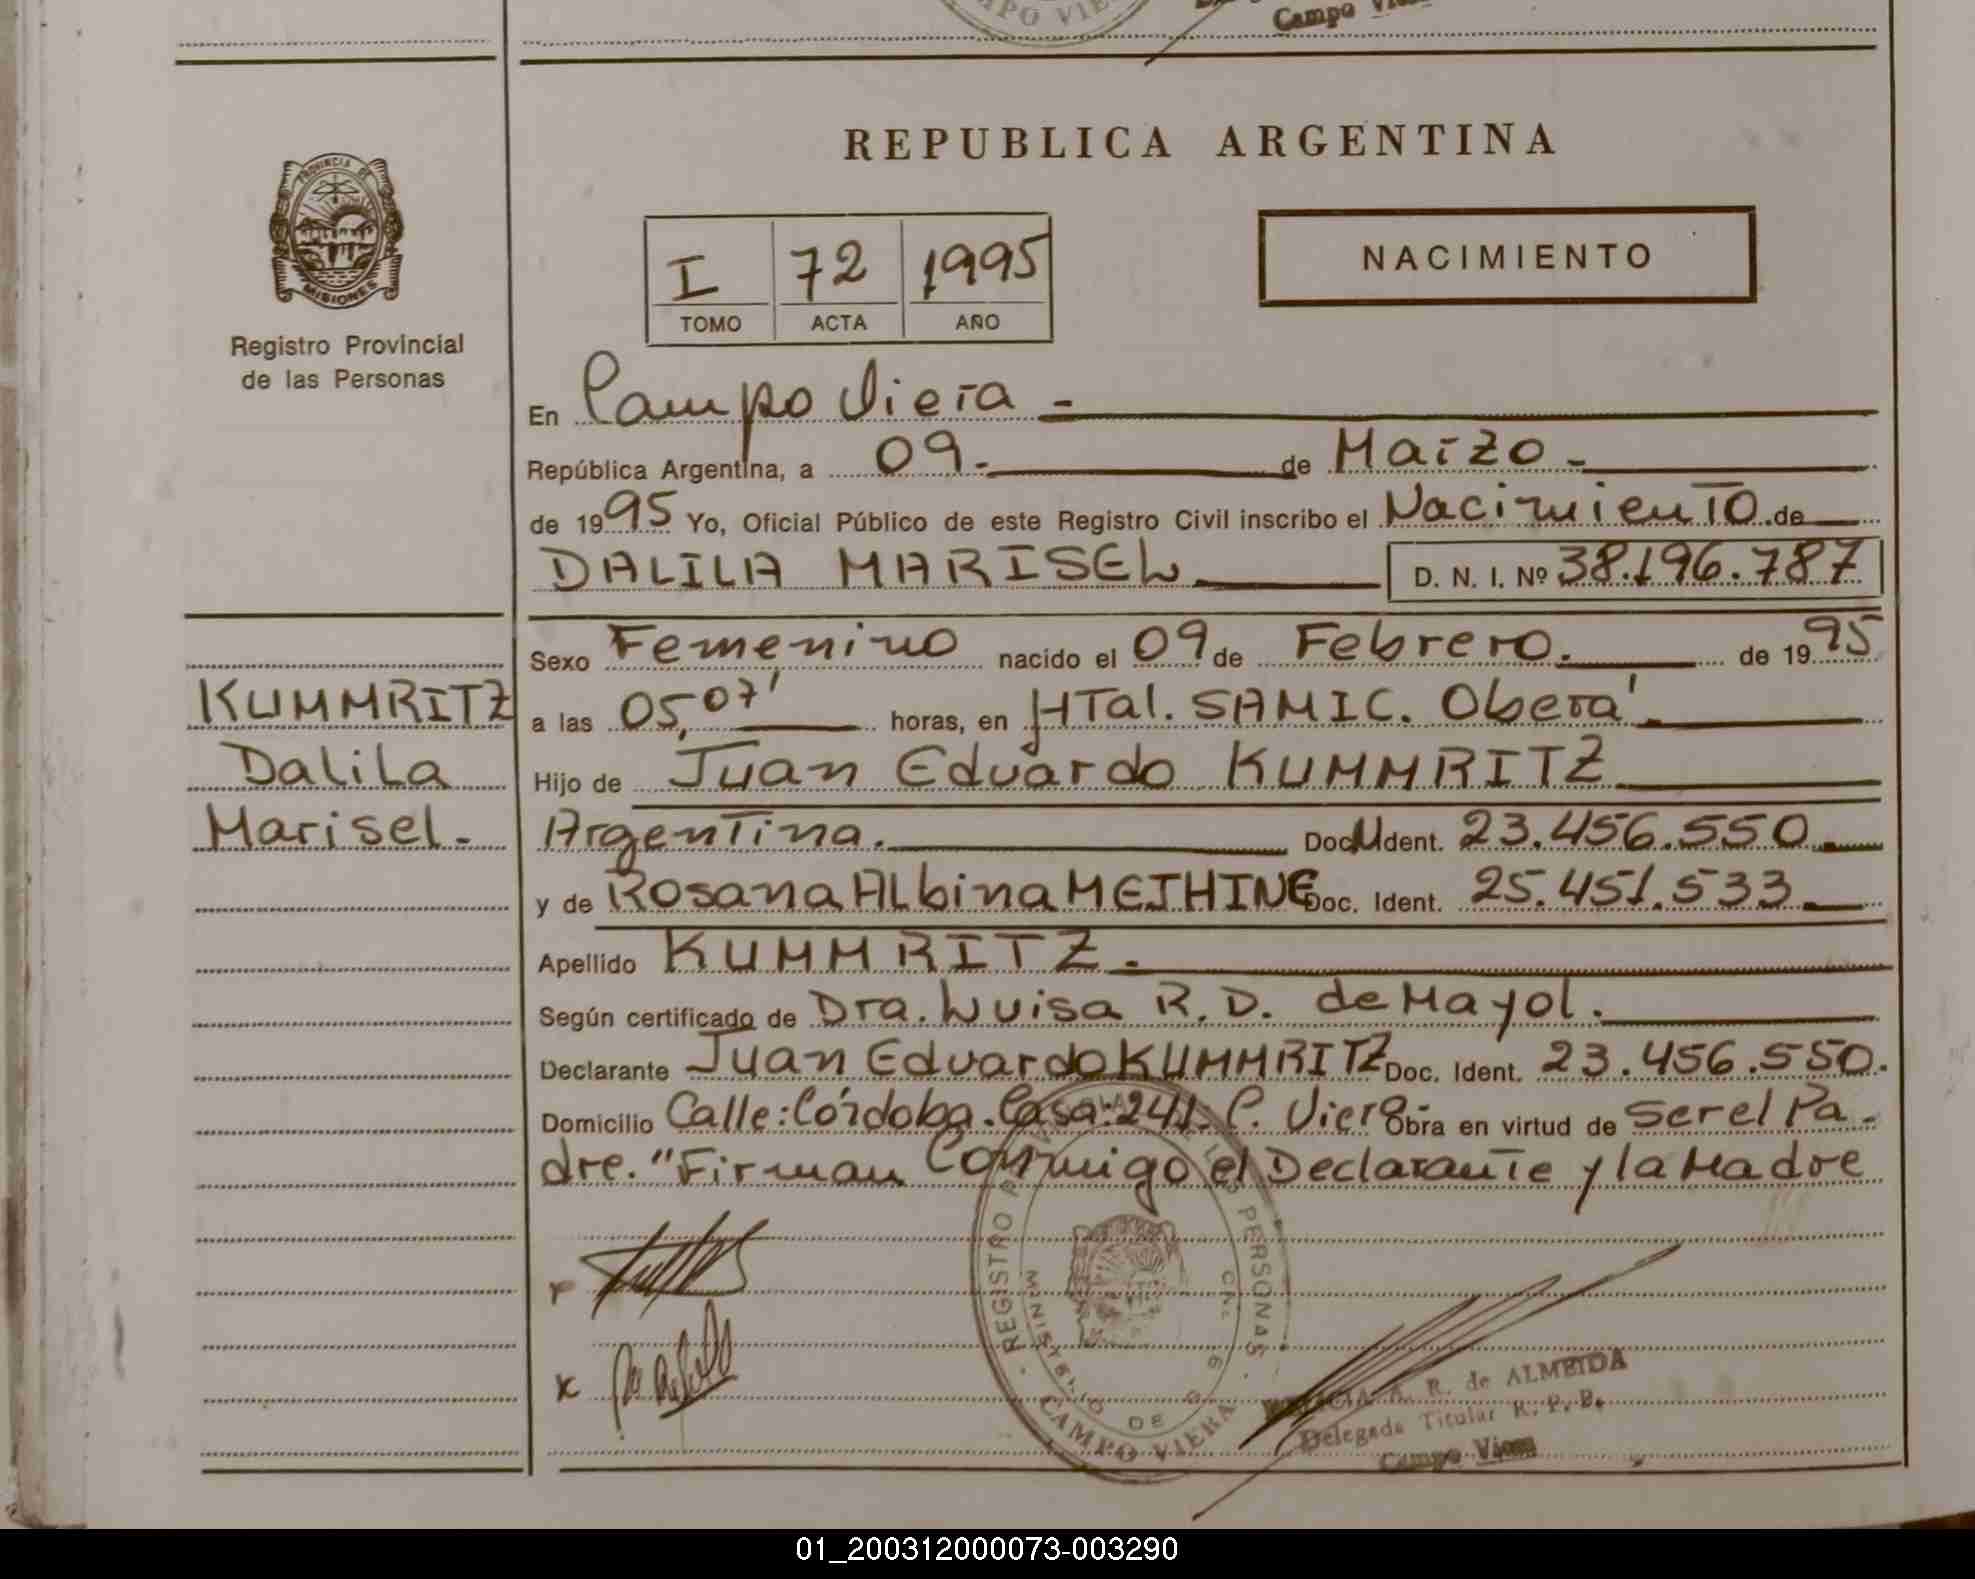 CAMPO VIERA
Campo Viera
REPUBLICA ARGENTINA
PROVINCIA DE
MISIONES
Registro Provincial
de las Personas
I 72 1995
TOMO ACTA AÑO
NACIMIENTO
En Campo Viera -
República Argentina, a 09.- de Marzo -
de 1995 Yo, Oficial Público de este Registro Civil inscribo el Nacimiento de
DALILA MARISEL D. N. I. Nº 38.196.787
Sexo Femenino nacido el 09 de Febrero. de 1995
KUMMRITZ
Dalila
Marisel.-
a las 05,07' horas, en HTal. SAMIC. Oberá.
Hijo de Juan Eduardo KUMMRITZ
Argentina. Doc. Ident. 23.456.550
y de Rosana Albina MEJHING Doc. Ident. 25.451.533
Apellido KUMMRITZ.
Según certificado de Dra. Luisa R. D. de Mayol.
Declarante Juan Eduardo KUMMRITZ Doc. Ident. 23.456.550.
Domicilio Calle: Córdoba. Casa: 241. C. Viera Obra en virtud de Ser el Pa-
dre. "Firman Conmigo el Declarante y la Madre
x
REGISTRO PERSONAS
MINISTERIO DE
CAMPO VIERA
A. R. de ALMEIDA
Delegada Titular R. P. P.
Campo Viera
01_200312000073-003290